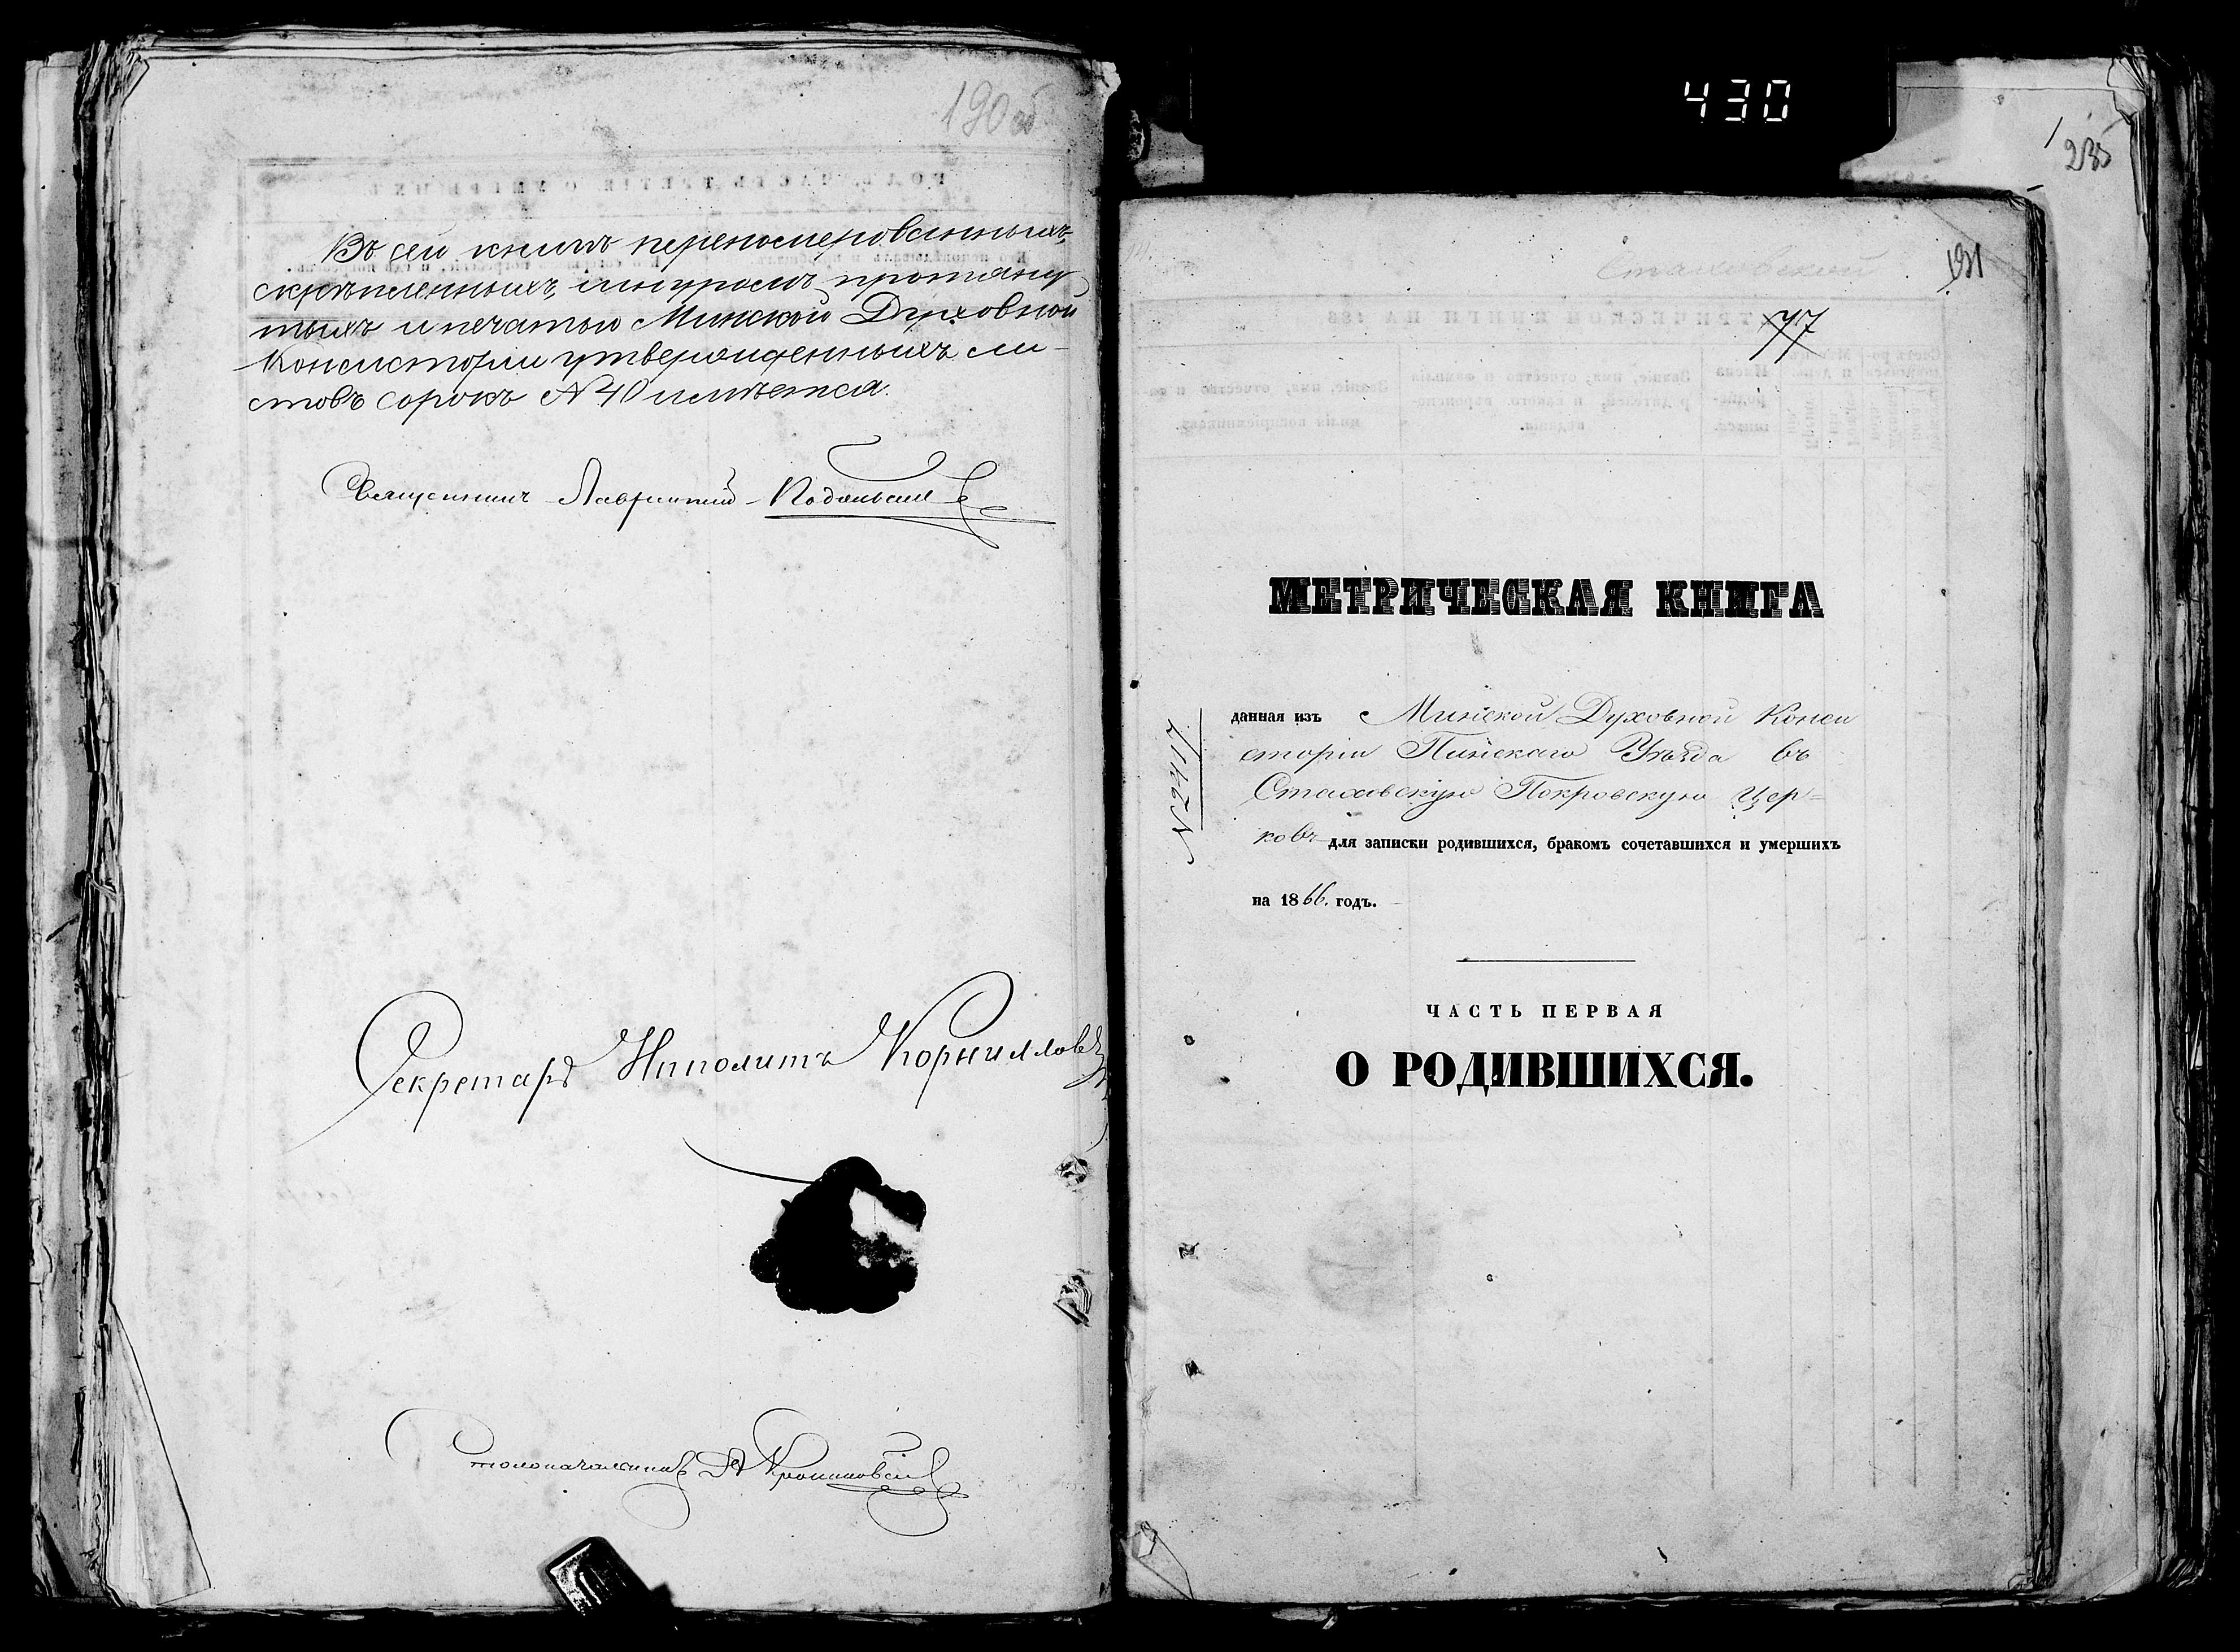 190 об
Въ сей книгѣ перенумерованныхъ,
скрѣпленныхъ, шнуромъ протяну
тыхъ и печатью Минской Духовной
Консисторіи утвержденныхъ ли-
стовъ сорокъ N 40 имѣется.
Священникъ Лаврентій Подольскій
Секретарь Ипполитъ Корниловъ
Столоначальникъ
430
235
Стаховской
191
77
МЕТРИЧЕСКАЯ КНИГА
данная изъ Минской Духовной Конси
сторіи Пинскаго Уѣзда въ
Стаховскую Покровскую Цер=
ковь для записки родившихся, бракомъ сочетавшихся и умершихъ
на 1866. годъ.
N 2417
ЧАСТЬ ПЕРВАЯ
О РОДИВШИХСЯ.